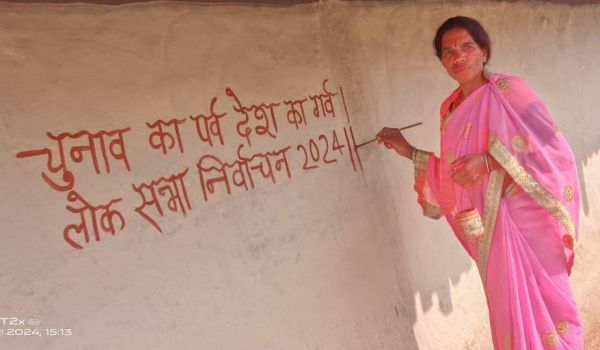 चुनाव का पर्व देश का गर्व|
लोक सभा निर्वाचन 2024||
T2x
2024, 15:13